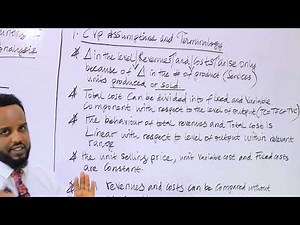 Analysis
1. CVP Assumptions and Terminology
Δ in the level Revenues and costs arise only
because of Δ in the # of product (services)
units produced or sold.
Total cost can be divided into fixed and variable
component with respect to the level of output (TC=TFC+TVC)
The behaviour of total revenues and Total cost is
Linear with respect to level of output within relevant
range
the unit selling price, unit variable cost and Fixed costs
are constant.
Revenues and costs can be compared without